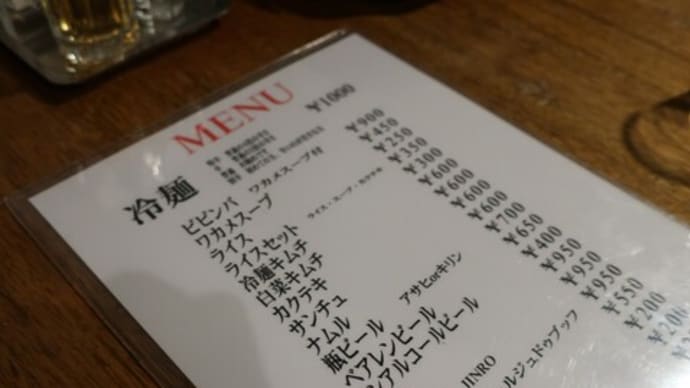 MENU
冷麺 ¥1000
ビビンバ ワカメスープ付 ¥900
ワカメスープ ¥450
ライス ¥250
ライスセット ライス・スープ・カクテキ ¥350
冷麺キムチ ¥300
白菜キムチ ¥600
カクテキ ¥600
サンチュ ¥600
ナムル ¥700
瓶ビール アサヒorキリン ¥650
ベアレンビール ¥400
ンアルコールビール ¥950
JINRO ¥950
ルジュドゥブッフ ¥950
¥550
¥200